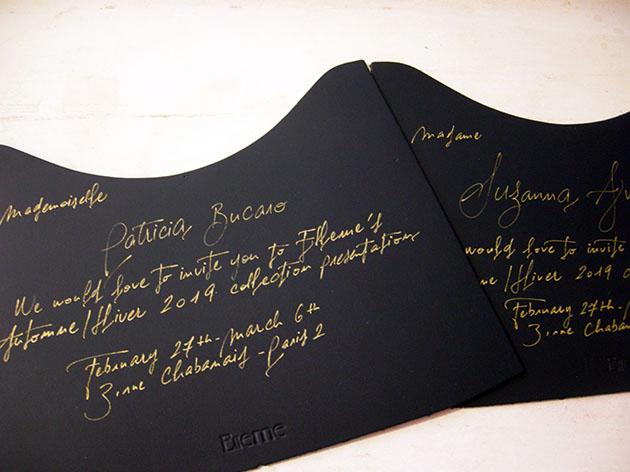 Mademoiselle
Patricia Bucaro
We would love to invite you to
Automne/Hiver 2019 collection presentations
February 27th-March 6th
3, rue Chabanais-Paris 2
Madame
Suzanna
would love to invite
Hiver 2019
February 27th-
3, rue Chabanais